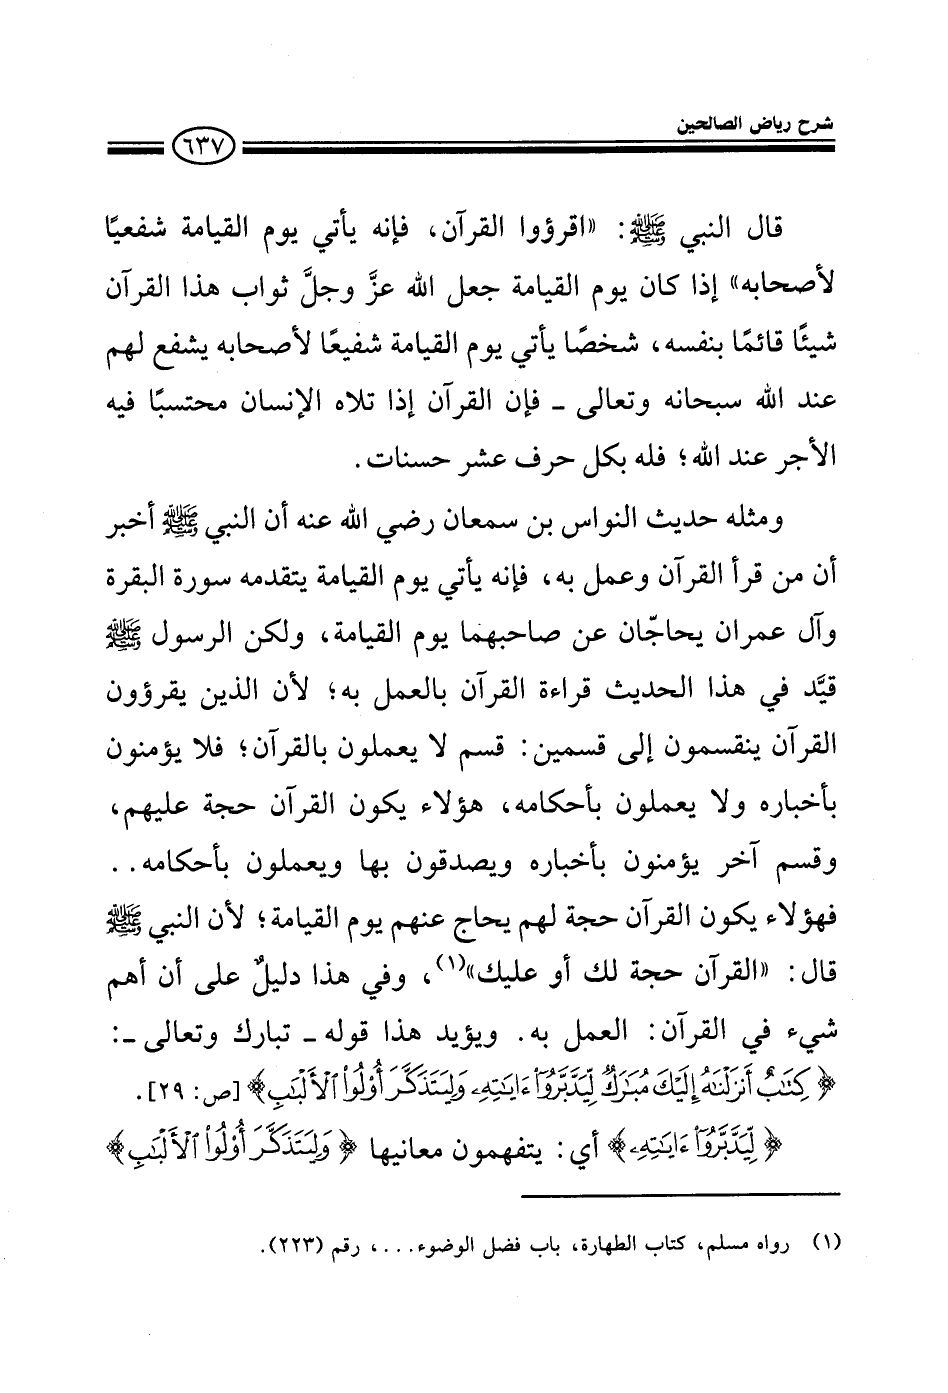 شرح رياض الصالحين
٦٣٧
قال النبي ﷺ: «اقرؤوا القرآن، فإنه يأتي يوم القيامة شفعيًا
لأصحابه» إذا كان يوم القيامة جعل الله عزَّ وجلَّ ثواب هذا القرآن
شيئًا قائمًا بنفسه، شخصًا يأتي يوم القيامة شفيعًا لأصحابه يشفع لهم
عند الله سبحانه وتعالى ـ فإن القرآن إذا تلاه الإنسان محتسبًا فيه
الأجر عند الله؛ فله بكل حرف عشر حسنات.
ومثله حديث النواس بن سمعان رضي الله عنه أن النبي ﷺ أخبر
أن من قرأ القرآن وعمل به، فإنه يأتي يوم القيامة يتقدمه سورة البقرة
وآل عمران يحاجّان عن صاحبهما يوم القيامة، ولكن الرسول ﷺ
قيَّد في هذا الحديث قراءة القرآن بالعمل به؛ لأن الذين يقرؤون
القرآن ينقسمون إلى قسمين: قسم لا يعملون بالقرآن؛ فلا يؤمنون
بأخباره ولا يعملون بأحكامه، هؤلاء يكون القرآن حجة عليهم،
وقسم آخر يؤمنون بأخباره ويصدقون بها ويعملون بأحكامه..
فهؤلاء يكون القرآن حجة لهم يحاج عنهم يوم القيامة؛ لأن النبي ﷺ
قال: «القرآن حجة لك أو عليك»(١)، وفي هذا دليلٌ على أن أهم
شيء في القرآن: العمل به. ويؤيد هذا قوله ـ تبارك وتعالى ـ:
﴿كِتَٰبٌ أَنزَلۡنَٰهُ إِلَيۡكَ مُبَٰرَكٞ لِّيَدَّبَّرُوٓاْ ءَايَٰتِهِۦ وَلِيَتَذَكَّرَ أُوْلُواْ ٱلۡأَلۡبَٰبِ﴾ [ص: ٢٩].
﴿لِّيَدَّبَّرُوٓاْ ءَايَٰتِهِۦ﴾ أي: يتفهمون معانيها ﴿وَلِيَتَذَكَّرَ أُوْلُواْ ٱلۡأَلۡبَٰبِ﴾
(١) رواه مسلم، كتاب الطهارة، باب فضل الوضوء...، رقم (٢٢٣).